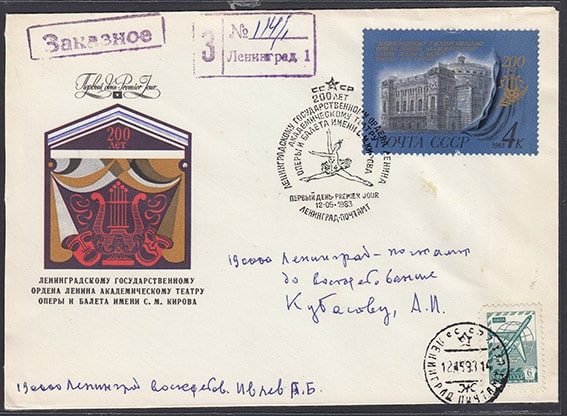 Заказное
З
№ 114/1
Ленинград 1
Первый день Premier Jour
200
ЛЕТ
ЛЕНИНГРАДСКОМУ ГОСУДАРСТВЕННОМУ
ОРДЕНА ЛЕНИНА АКАДЕМИЧЕСКОМУ ТЕАТРУ
ОПЕРЫ И БАЛЕТА ИМЕНИ С. М. КИРОВА
СССР
200 ЛЕТ
ЛЕНИНГРАДСКОМУ ГОСУДАРСТВЕННОМУ ОРДЕНА ЛЕНИНА
АКАДЕМИЧЕСКОМУ ТЕАТРУ
ОПЕРЫ И БАЛЕТА ИМЕНИ КИРОВА
ПЕРВЫЙ ДЕНЬ PREMIER JOUR
12-05-1983
ЛЕНИНГРАД-ПОЧТАМТ
ЛЕНИНГРАДСКОМУ ГОСУДАРСТВЕННОМУ
200
ЛЕТ
ПОЧТА СССР
1983
4к
190000 Ленинград-почтамт
до востребования
Кубасову, А.И.
СССР
ЛЕНИНГРАД ПОЧТАМТ
Ж
6
190000 Ленинград востребов. Ивлев А.Б.